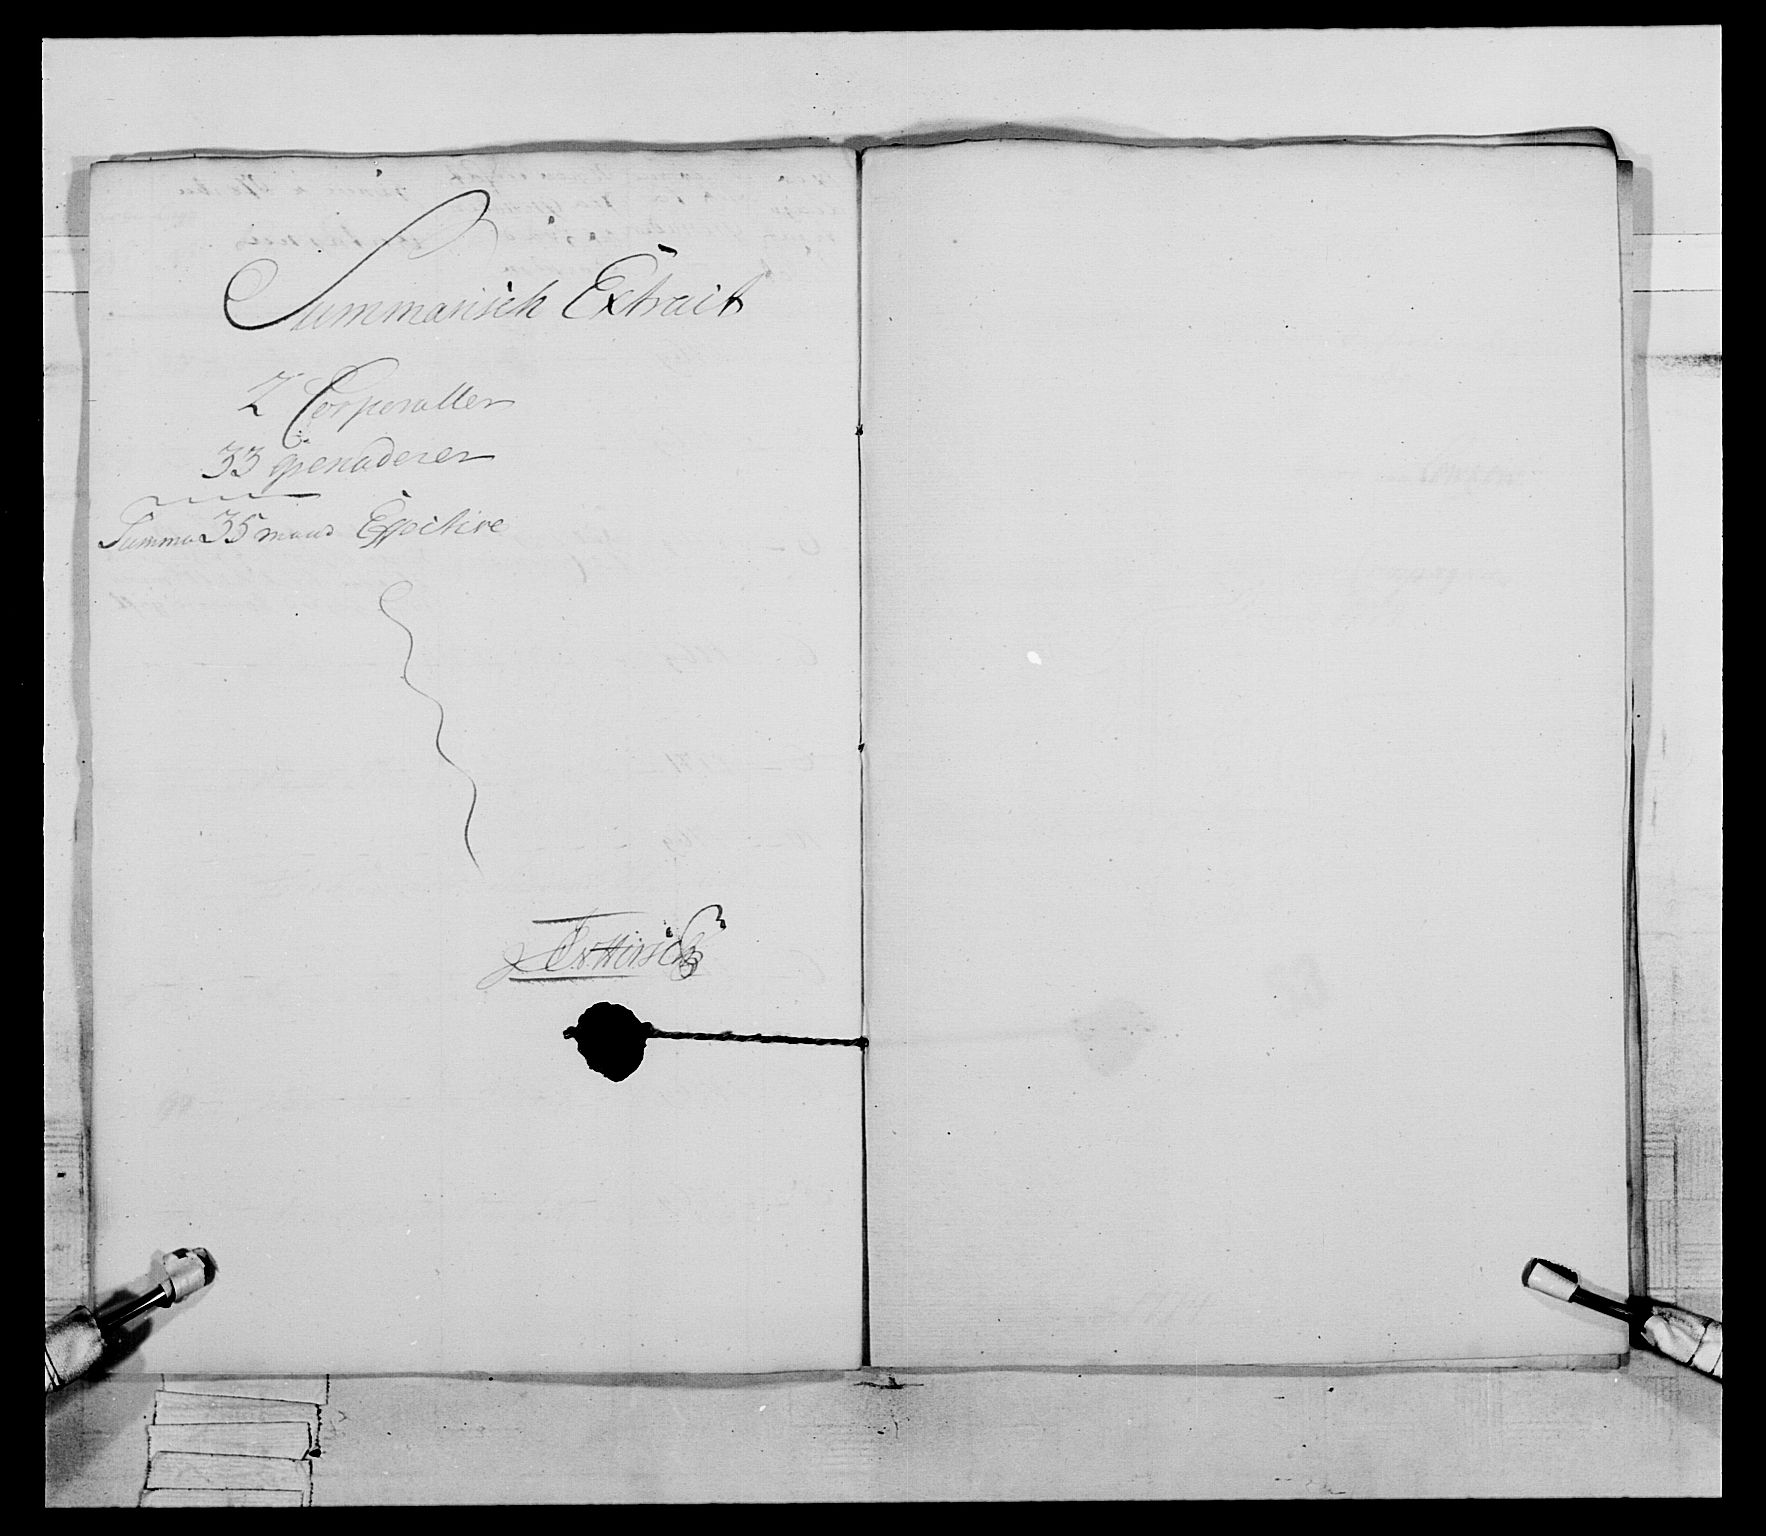 Summarisch Extract
2 Corporaller
33 grenaderer
Summa 35 mand Effective